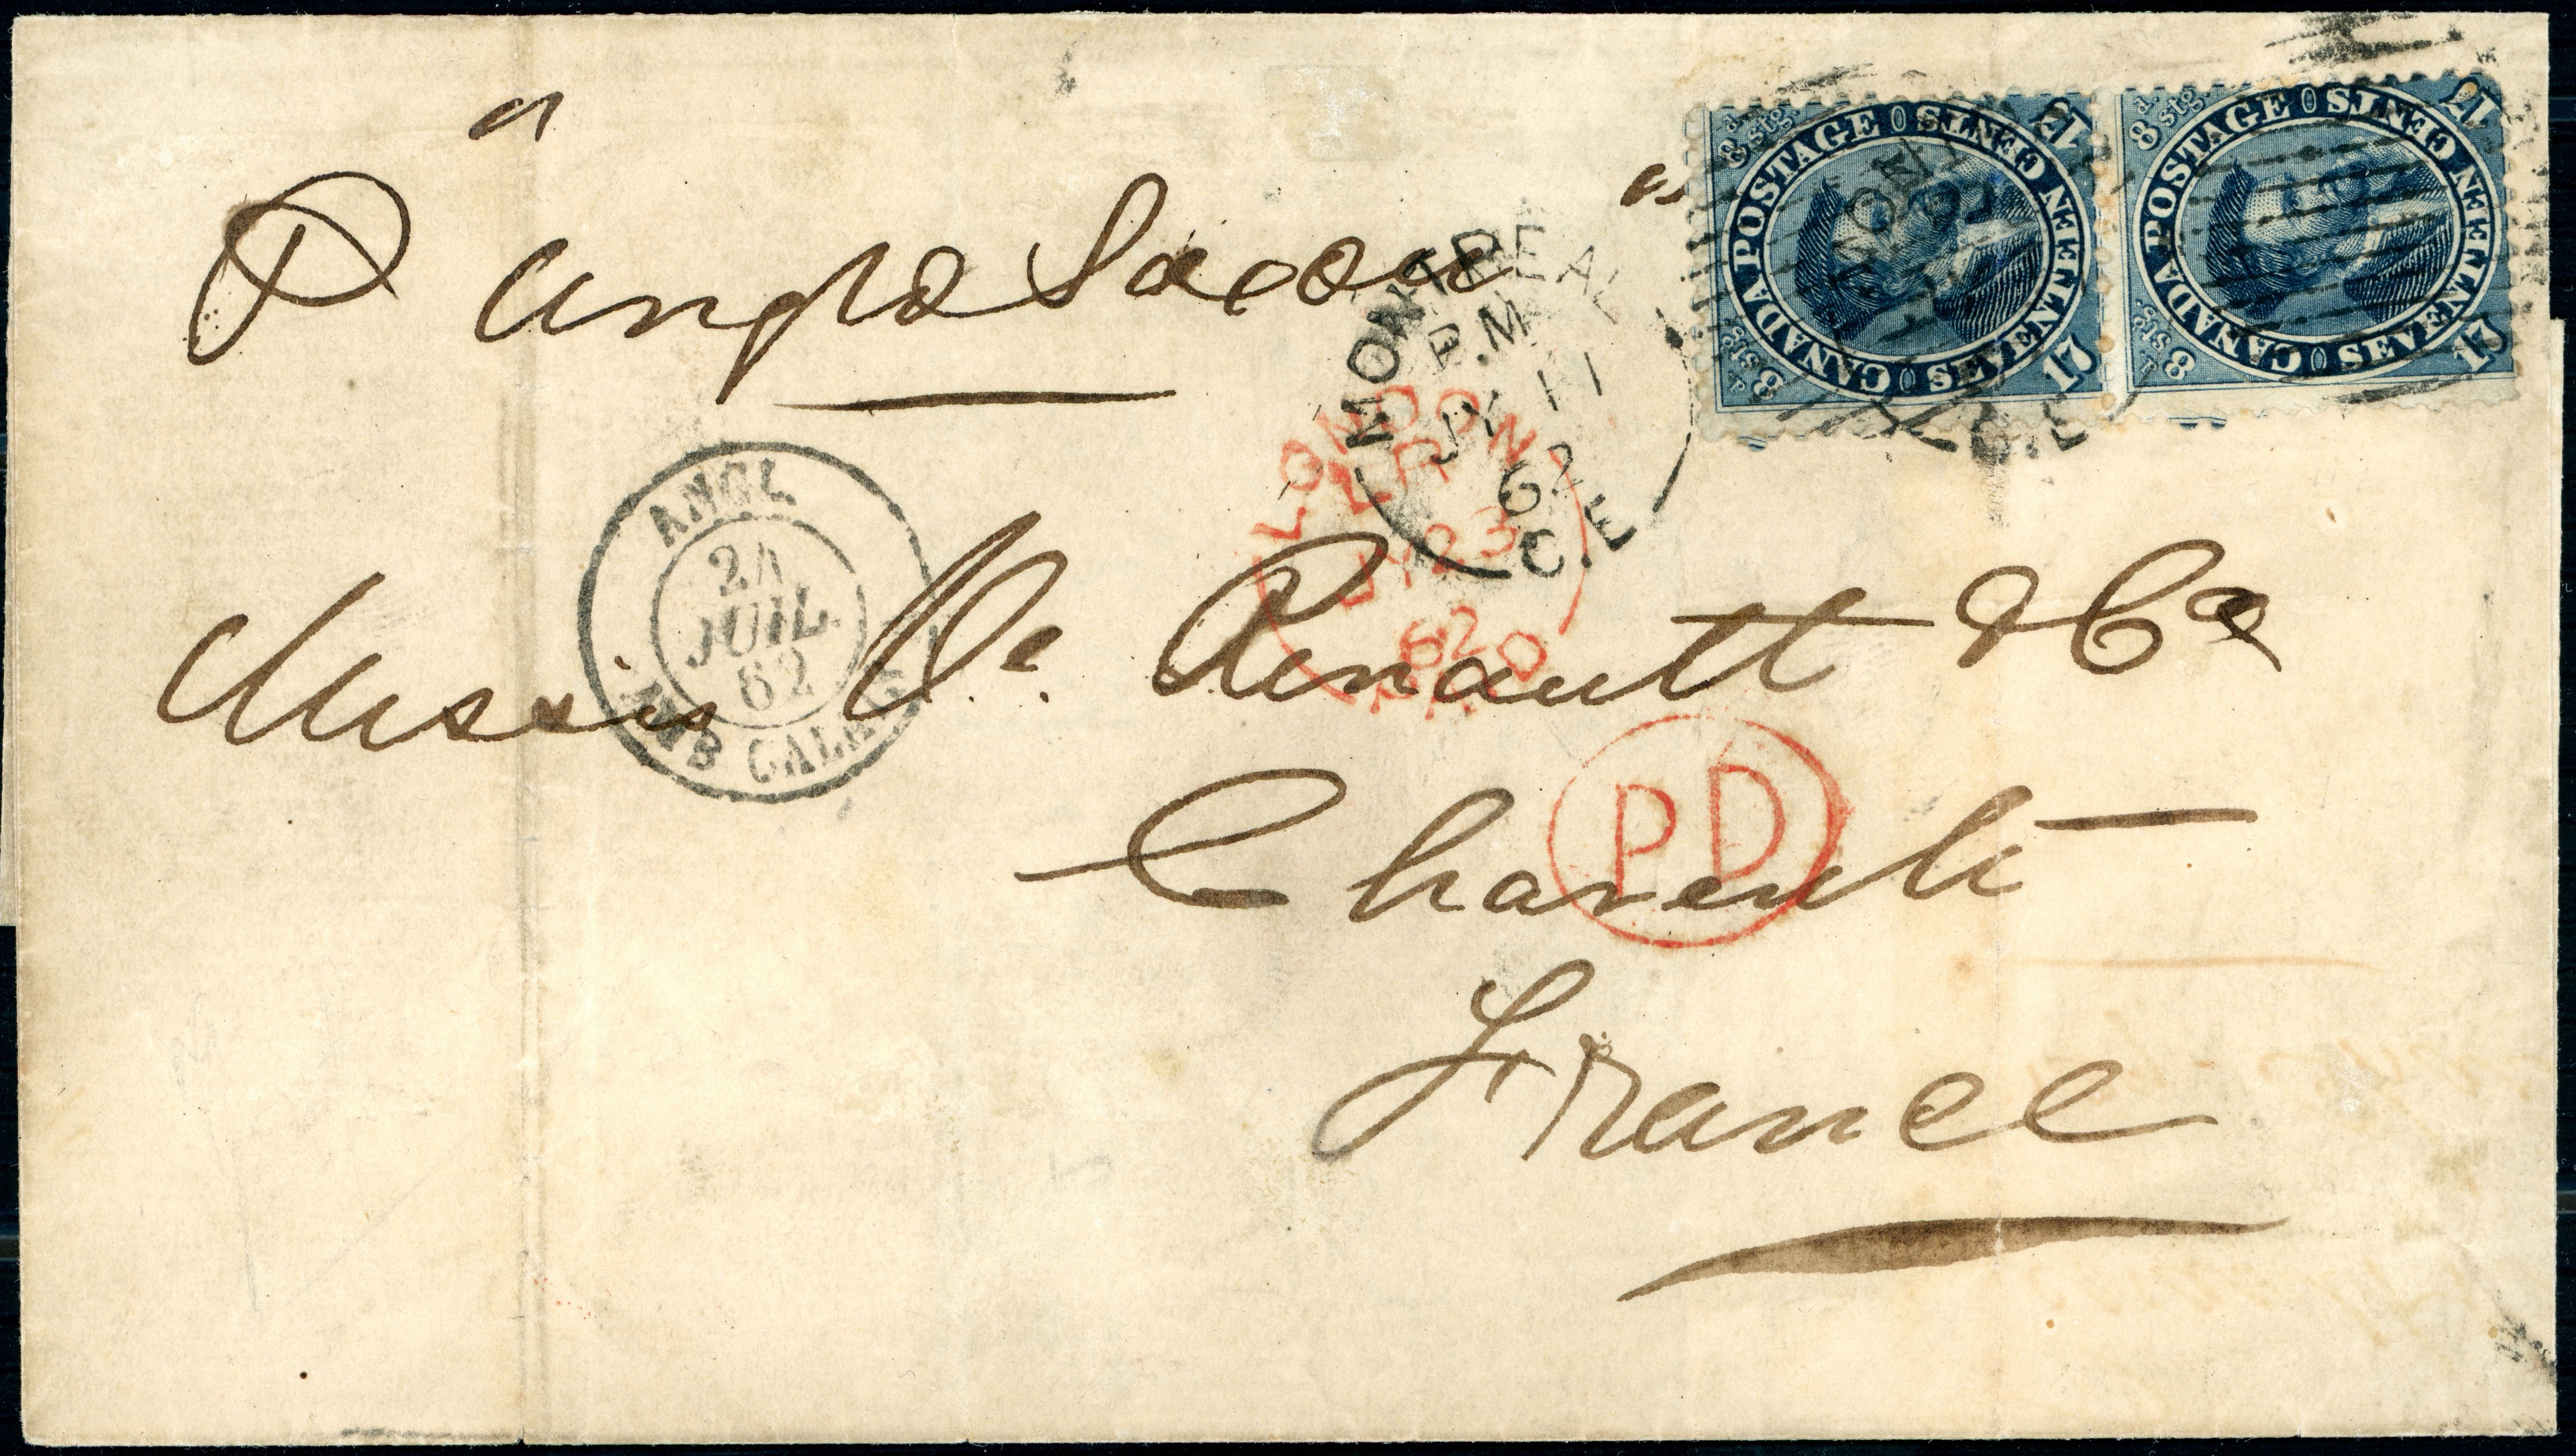 P "Anglo Saxon"
CANADA POSTAGE
SEVENTEEN CENTS
17
17
8 d. stg.
8 d. stg.
CANADA POSTAGE
SEVENTEEN CENTS
17
17
8 d. stg.
8 d. stg.
MONTREAL
P.M
JY 11
62
C.E
LONDON
JY 23
62
PAID
ANGL
24
JUIL.
62
AMB CALAIS
Messrs Renault & Co
PD
Charente
France